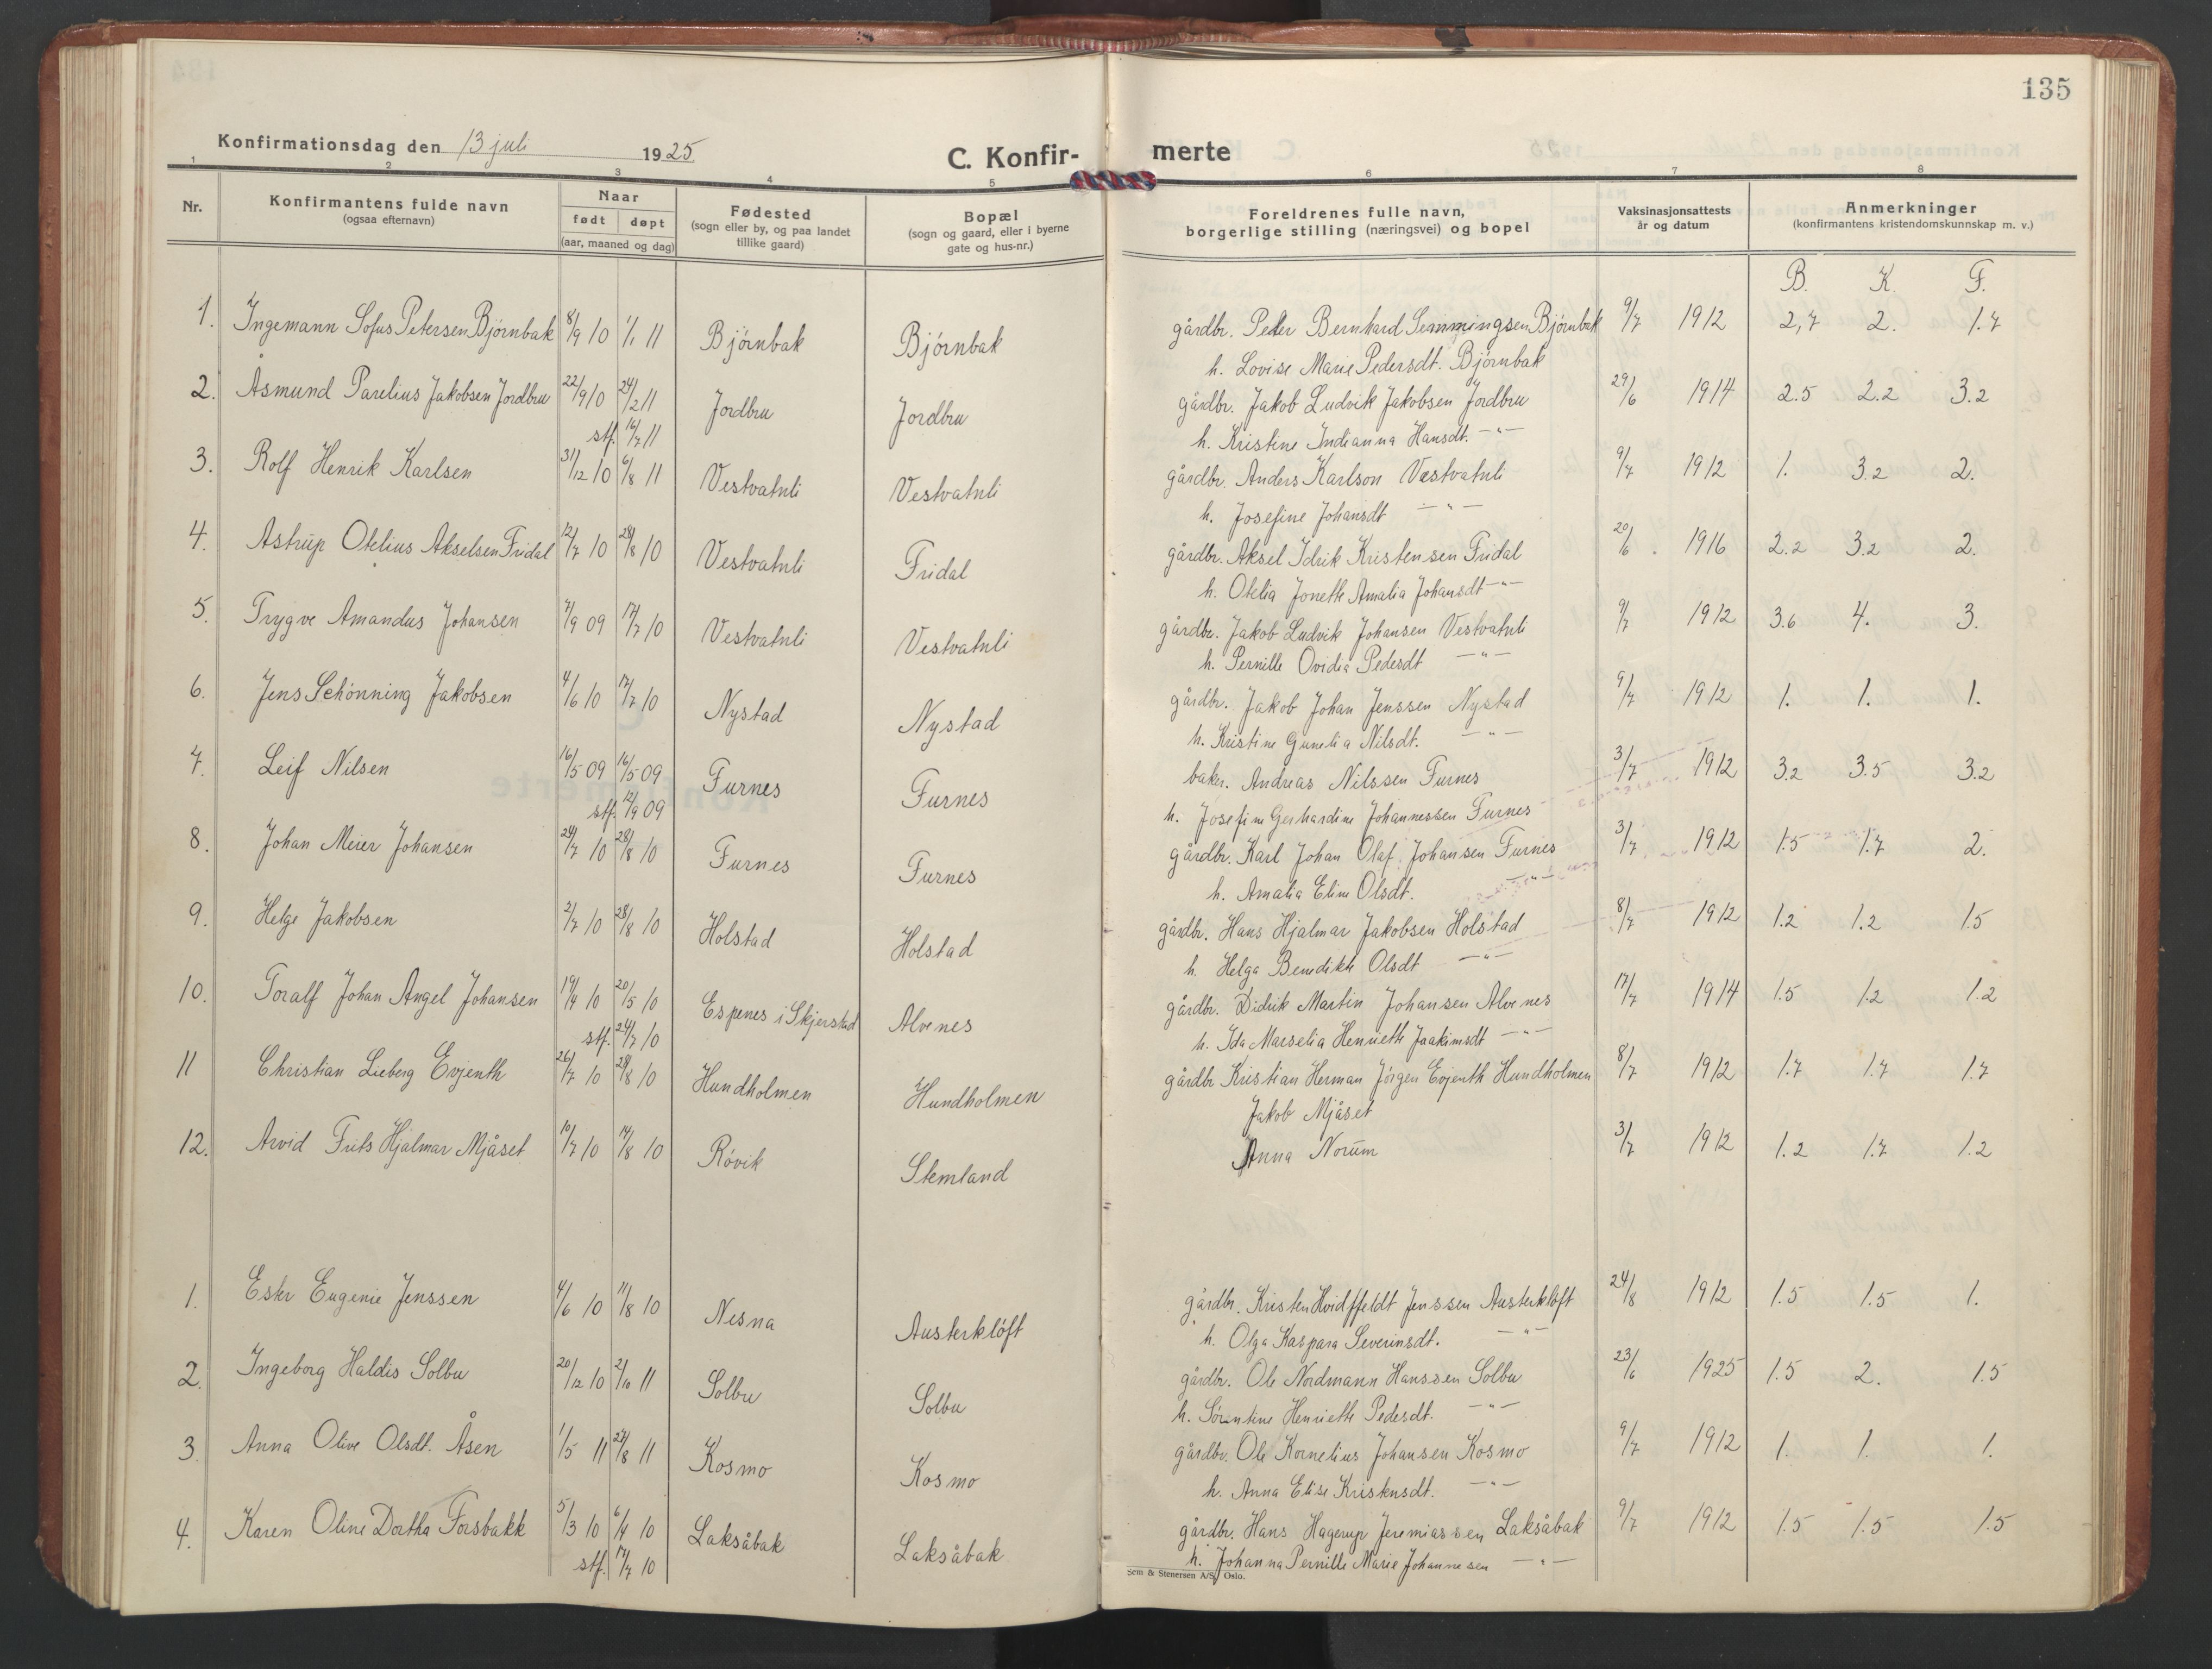 135
Konfirmationsdag den 13 juli 1925
C. Konfir- merte
1 2 3 4 5 6 7 8
Nr. Konfirmantens fulde navn (ogsaa efternavn) Naar født døpt (aar, maaned og dag) Fødested (sogn eller by, og paa landet tillike gaard) Bopæl (sogn og gaard, eller i byerne gate og hus-nr.) Foreldrenes fulle navn, borgerlige stilling (næringsvei) og bopel Vaksinasjonsattests år og datum Anmerkninger (konfirmantens kristendomskunnskap m. v.)
B. K F.
1. Ingemann Sofus Petersen Bjørnbak 8/9 10 1/1 11 Bjørnbak Bjørnbak gårdbr. Peder Bernhard Semmingsen Bjørnbak 9/7 1912 2,7 2. 1.7
h. Lovise Marie Pedersdt. Bjørnbak
2. Åsmund Parelius Jakobsen Jordbru 22/9 10 24/2 11 Jordbru Jordbru gårdbr. Jakob Ludvik Jakobsen Jordbru 29/6 1914 2.5 2.2 3.2
stf. 16/7 11 h. Kristine Indianna Hansdt. -"-
3. Rolf Henrik Karlsen 31/12 10 6/8 11 Vestvatnli Vestvatnli gårdbr. Anders Karlson Vestvatnli 9/7 1912 1. 3.2 2.
h. Josefine Johansdt -"-
4. Astrup Otelius Akselsen Fridal 12/7 10 28/8 10 Vestvatnli Fridal gårdbr. Aksel Idrik Kristensen Fridal 20/6 . 1916 2.2 3.2 2.
h. Otelia Jonette Amalia Johansdt -"-
5. Trygve Amandus Johansen 7/9 09 17/7 10 Vestvatnli Vestvatnli gårdbr. Jakob Ludvik Johansen Vestvatnli 9/7 1912 3.6 4. 3.
h. Pernille Ovidia Pedersdt -"-
6. Jens Schønning Jakobsen 4/6 10 17/7 10 Nystad Nystad gårdbr. Jakob Johan Jenssen Nystad 9/7 1912 1. 1. 1.
h. Kristine Gunelia Nilsdt. -"-
7. Leif Nilsen 16/5 09 16/5 09 Furnes Furnes baker. Andreas Nilssen Furnes 3/7 1912 3.2 3.5 3.2
stf. 12/9 09 h. Josefine Gerhardine Johannessen Furnes
8. Johan Meier Johansen 24/7 10 28/8 10 Furnes Furnes gårdbr. Karl Johan Olaf Johansen Furnes 3/7 1912 1.5 1.7 2.
h. Amalia Eline Olsdt. -"-
9. Helge Jakobsen 2/7 10 28/8 10 Holstad Holstad gårdbr. Hans Hjalmar Jakobsen Holstad 8/7 1912 1.2 1.2 1.5
h. Helga Benedikte Olsdt -"-
10. Toralf Johan Angel Johansen 19/4 10 20/5 10 Espenes i Skjerstad Alvenes gårdbr. Didrik Martin Johansen Alvenes 17/7 1914 1.5 1.2 1.2
stf. 24/7 10 h. Ida Marselia Henriette Joakimsdt -"-
11 Christian Lieberg Evjenth 26/7 10 28/8 10 Hundholmen Hundholmen gårdbr Kristian Herman Jørgen Evjenth Hundholmen 8/7 1912 1.7 1.7 1.7
Jakob Mjåset
12. Arvid Frits Hjalmar Mjåset 10/7 10 14/8 10 Røvik Stemland Anna Norum 3/7 1912 1.2 1.7 1.2
1. Ester Eugenie Jenssen 4/6 10 11/8 10 Nesna Austerkløft gårdbr. Kristen Hvidffeldt Jenssen Austerkløft 24/8 1912 1.5 1.5 1.
h. Olga Kaspara Severinsdt. -"-
2. Ingeborg Haldis Solbu 20/12 10 2/10 11 Solbu Solbu gårdbr. Ole Nordmann Hanssen Solbu 23/6 1925 1.5 2. 1.5
h. Sørentine Henriette Pedersdt. -"-
3. Anna Olive Olsdt. Åsen 1/5 11 27/8 11 Kosmo Kosmo gårdbr. Ole Kornelius Johansen Kosmo 9/7 1912 1. 1. 1.
h. Anna Elise Kristensdt. -"-
4. Karen Oline Dortha Forsbakk 5/3 10 6/4 10 Laksåbak Laksåbak gårdbr. Hans Hagerup Jeremiassen Laksåbak 9/7 1912 1.5 1.5 1.5
stf. 17/7 10 h. Johanna Pernille Marie Johannesen -"-
Sem & Stenersen A/S, Oslo.